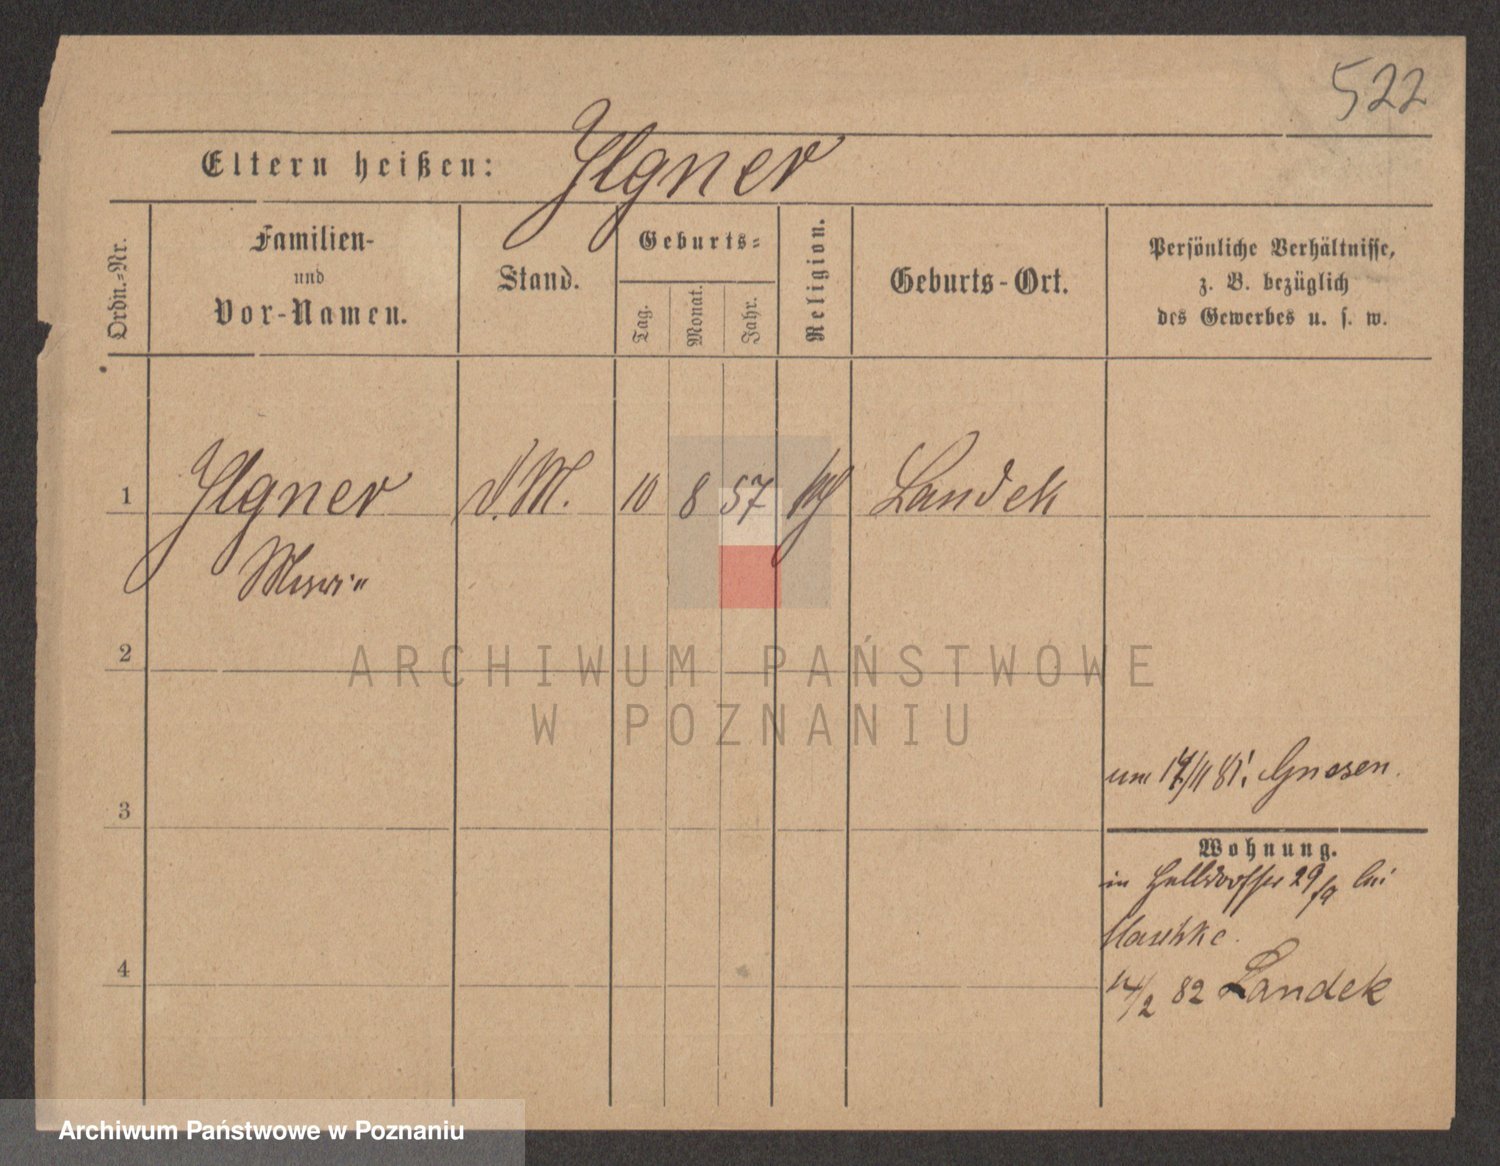 522
Eltern heißen: Ilgner
Ordn.-Nr.
Familien-
und
Vor-Namen.
Stand.
Geburts-
Tag.
Monat.
Jahr.
Religion.
Geburts-Ort.
Persönliche Verhältnisse,
z. B. bezüglich
des Gewerbes u. s. w.
1 Ilgner d. M. 10 8 57 Landek
2
ARCHIWUM PAŃSTWOWE
W POZNANIU
81. Gnesen.
3
Wohnung.
in Halldorfstr 29 bei
Maschke.
4
82 Landek
Archiwum Państwowe w Poznaniu